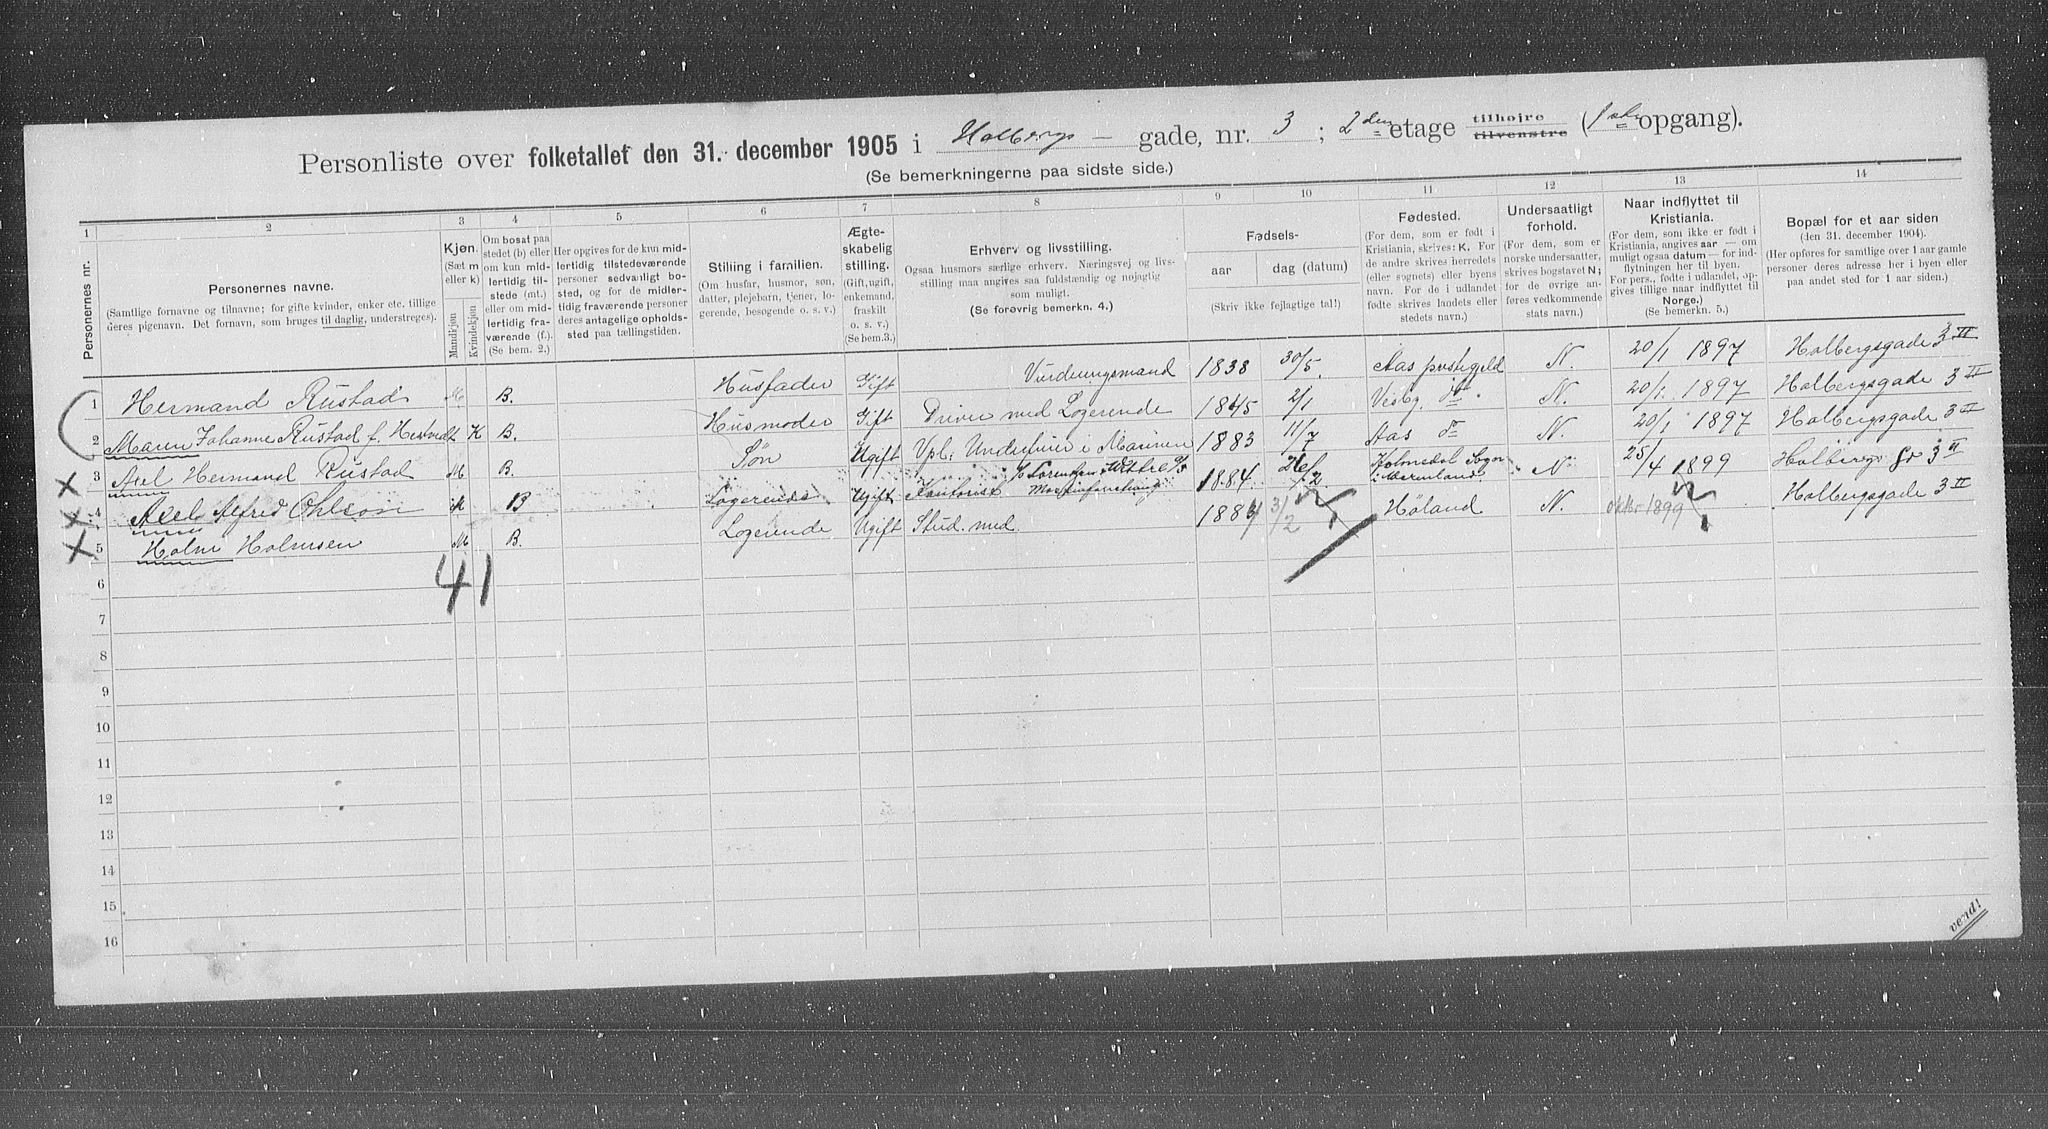 Personliste over folketallet den 31. december 1905 i Holbergs — gade, nr. 3 ; 2den etage tilhøire tilvenstre (1ste opgang).
(Se bemerkningerne paa sidste side.)
1 2 3 4 5 6 7 8 9 10 11 12 13 14
Personernes nr.
Personernes navne.
(Samtlige fornavne og tilnavne; for gifte kvinder, enker etc. tillige
deres pigenavn. Det fornavn, som bruges til daglig, understreges).
Kjøn.
(Sæt m
eller k)
Mandkjøn
Kvindekjøn
Om bosat paa
stedet (b) eller
om kun mid-
lertidig til-
stede (mt.)
eller om mid-
lertidig fra-
værende (f.).
(Se bem. 2.)
Her opgives for de kun mid-
lertidig tilstedeværende
personer sedvanligt bo-
sted, og for de midler-
tidig fraværende personer
deres antagelige opholds-
sted paa tællingstiden.
Stilling i familien.
(Om husfar, husmor, søn,
datter, plejebarn, tjener, lo-
gerende, besøgende o. s. v.)
Ægte-
skabelig
stilling.
(Gift, ugift,
enkemand,
fraskilt
o. s. v.)
(Se bem.3.)
Erhverv og livsstilling.
Ogsaa husmors særlige erhverv. Næringsvej og livs-
stilling maa angives saa fuldstændig og nøjagtig
som muligt.
(Se forøvrig bemerkn. 4.)
Fødsels-
aar dag (datum)
(Skriv ikke fejlagtige tal!)
Fødested.
(For dem, som er født i
Kristiania, skrives: K. For
de andre skrives herredets
(eller sognets) eller byens
navn. For de i udlandet
fødte skrives landets eller
stedets navn.)
Undersaatligt
forhold.
(For dem, som er
norske undersaatter,
skrives bogstavet N;
for de øvrige an-
føres vedkommende
stats navn).
Naar indflyttet til
Kristiania.
(For dem, som ikke er født i
Kristiania, angives aar — om
muligt ogsaa datum — for ind-
flytningen her til byen.
For pers., fødte i udlandet, op-
gives tillige naar indflyttet til
Norge.)
(Se bemerkn. 5.)
Bopæl for et aar siden
(den 31. december 1904).
(Her opføres for samtlige over 1 aar gamle
personer deres adresse her i byen eller
paa andet sted for 1 aar siden.)
1 Hermand Rustad M. B. Husfader Gift Vurderingsmand 1838 30/5. Aas prestegjeld N. 20/1 1897 Holbergsgade 3 II
2 Maren Johanne Rustad f. K B. Husmoder Gift Driver med Logerende 1845 2/1 Vestby do N. 20/1. 1897 Holbergsgade 3 II
3 Axel Hermand Rustad M B. Søn Ugift Vpl: i Marinen 1883 11/7 Aas do N. 20/1 1897 Holbergsgade 3 II
4 Axel Alfred Ohlson M B Logerende Ugift Kontorist 1884 26/2 Sogn N. 25/4 1899 Holbergs gd 3 II
5 Holm Holmsen M B. Logerende Ugift Stud. med. 1884 3/2 Høland N. oktbr 1899 Holbergsgade 3 II
41
6
7
8
9
10
11
12
13
14
15
16
vend!